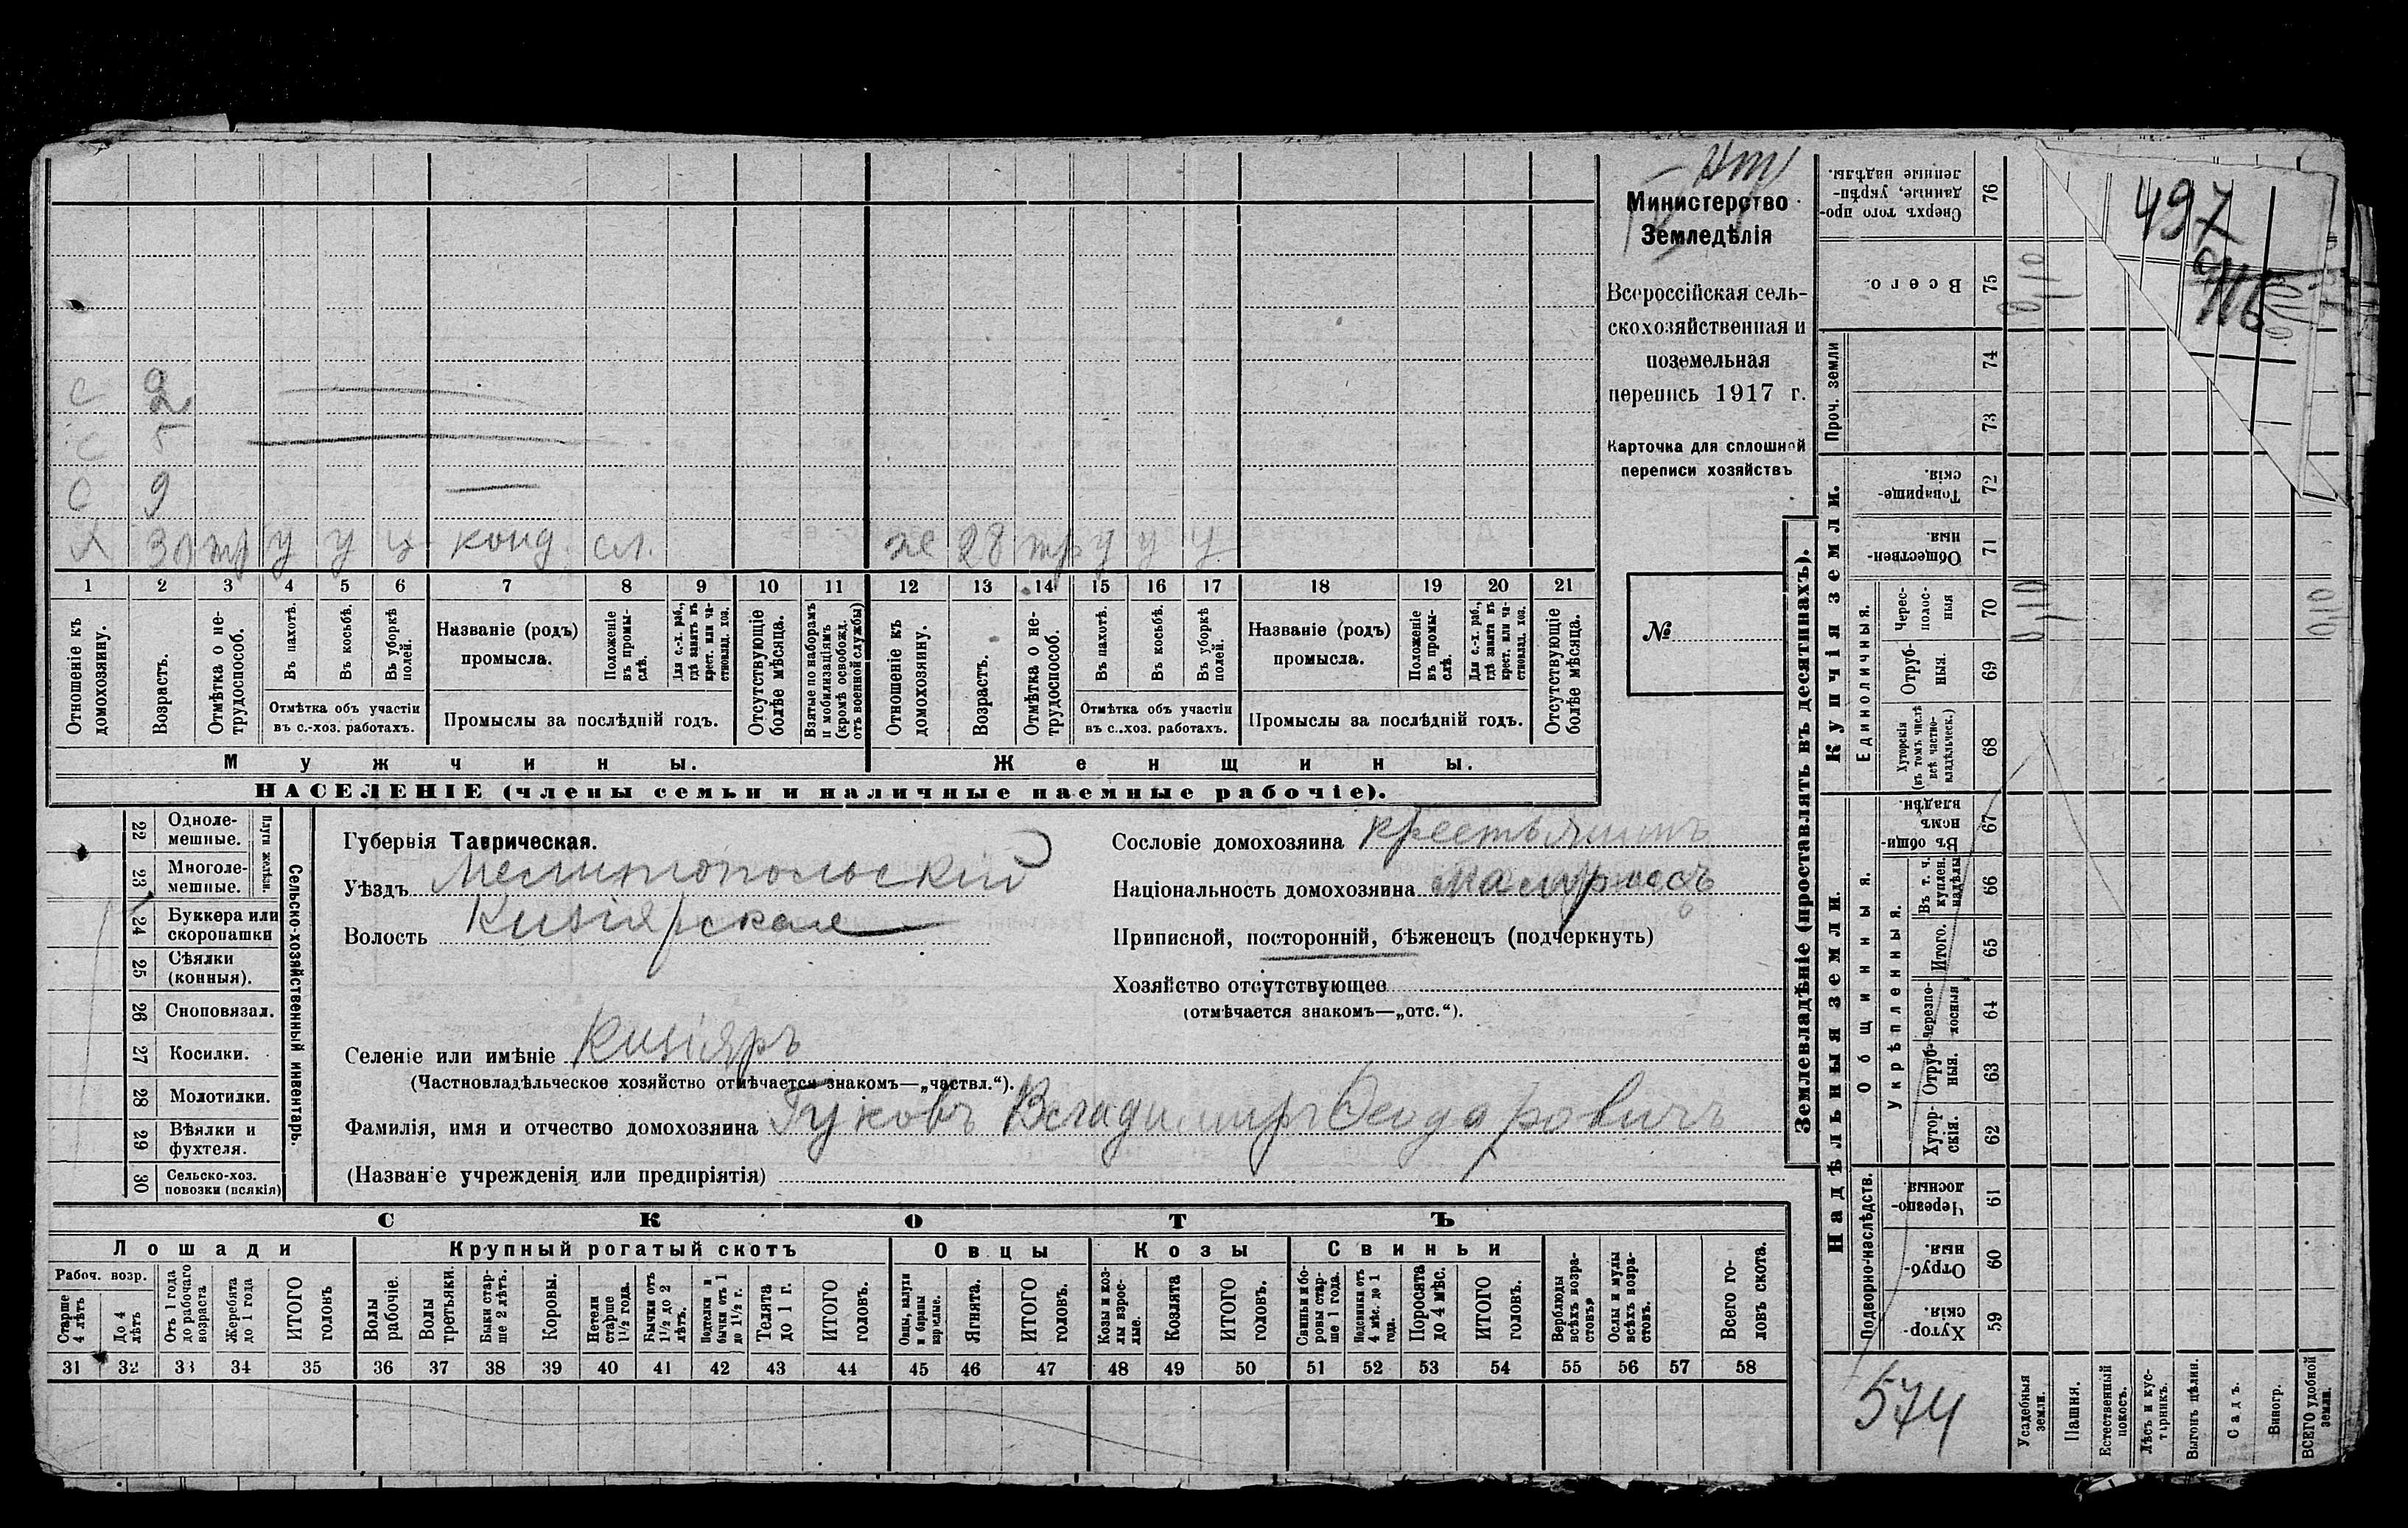 497
Министерство
Земледѣлія
Всероссійская сель-
скохозяйственная и
поземельная
перепись 1917 г.
Карточка для сплошной
переписи хозяйствъ
№
С 2
С 5
С 9
Х 30 тр у у у конд. сл. же 28 тр у у у
1 2 3 4 5 6 7 8 9 10 11 12 13 14 15 16 17 18 19 20 21
Отношеніе къ домохозяину.
Возрастъ.
Отмѣтка о не-трудоспособ.
Въ пахотѣ.
Въ косьбѣ.
Въ уборкѣ полей.
Отмѣтка объ участіи
въ с.-хоз. работахъ.
Названіе (родъ)
промысла.
Положеніе въ промы-слѣ.
Для с.-х. раб., гдѣ занятъ въ крест. или ча-стновлад. хоз.
Промыслы за послѣдній годъ.
Отсутствующіе болѣе мѣсяца.
Взятые по наборамъ и мобилизаціямъ (кромѣ освобожд. отъ военной службы)
Отношеніе къ домохозяину.
Возрастъ.
Отмѣтка о не-трудоспособ.
Въ пахотѣ.
Въ косьбѣ.
Въ уборкѣ полей.
Отмѣтка объ участіи
въ с.-хоз. работахъ.
Названіе (родъ)
промысла.
Положеніе въ промы-слѣ.
Для с.-х. раб., гдѣ занята въ крест. или ча-стновлад. хоз.
Промыслы за послѣдній годъ.
Отсутствующіе болѣе мѣсяца.
Мужчины.
Женщины.
НАСЕЛЕНІЕ (члены семьи и наличные наемные рабочіе).
22 Одноле-мешные.
23 Многоле-мешные.
Плуги желѣзн.
24 Буккера или скоропашки
25 Сѣялки (конныя).
26 Сноповязал.
27 Косилки.
28 Молотилки.
29 Вѣялки и фухтеля.
30 Сельско-хоз. повозки (всякія)
Сельско-хозяйственный инвентарь.
Губернія Таврическая.
Уѣздъ Мелитопольскій
Волость Кизіярская
Селеніе или имѣніе Кизіяръ
(Частновладѣльческое хозяйство отмѣчается знакомъ—„частвл.“).
Фамилія, имя и отчество домохозяина Гуковъ Владимиръ Феодоровичъ
(Названіе учрежденія или предпріятія)
Сословіе домохозяина крестьянинъ
Національность домохозяина малороссъ
Приписной, посторонній, бѣженецъ (подчеркнуть)
Хозяйство отсутствующее
(отмѣчается знакомъ—„отс.“).
СКОТЪ
Лошади
Крупный рогатый скотъ
Овцы
Козы
Свиньи
Рабоч. возр.
Старше 4 лѣтъ
До 4 лѣтъ
Отъ 1 года до рабочаго возраста
Жеребята до 1 года
ИТОГО головъ
Волы рабочіе.
Волы третьяки.
Быки стар-ше 2 лѣтъ.
Коровы.
Нетели старше 1½ года.
Бычки отъ 1½ до 2 лѣтъ.
Подтелки и бычки отъ 1 до 1½ г.
Телята до 1 г.
ИТОГО головъ.
Овцы, валухи и бараны взрослые.
Ягнята.
ИТОГО головъ.
Козы и коз-лы взрос-лые.
Козлята
ИТОГО головъ.
Свиньи и бо-ровы стар-ше 1 года.
Подсвинки отъ 4 мѣс. до 1 года.
Поросята до 4 мѣс.
ИТОГО головъ.
Верблюды всѣхъ возра-стовъ
Ослы и мулы всѣхъ возра-стовъ.
Всего го-ловъ скота.
31 32 33 34 35 36 37 38 39 40 41 42 43 44 45 46 47 48 49 50 51 52 53 54 55 56 57 58
Землевладѣніе (проставлять въ десятинахъ).
Надѣльныя земли.
Купчія земли.
Проч. земли
Подворно-наслѣдств.
Общинныя.
Укрѣпленныя.
Единоличныя.
Сверхъ того про-данные, укрѣп-ленные надѣлы. 76
Всего. 75 0,10
74
73
Товарище-скія. 72
Обществен-ныя. 71
Черес-полос-ныя 70 0,10 0,10
Отруб-ныя. 69
Хуторскія (въ томъ числѣ всѣ частно-владѣльческ.) 68
Въ общи-номъ владѣн. 67
Въ т. ч. куплен. надѣлы 66
Итого. 65
Черезпо-лосныя 64
Отруб-ныя. 63
Хутор-скія. 62
Черезпо-лосныя. 61
Отруб-ныя. 60
Хутор-скія. 59
574
Усадебныя земли.
Пашня.
Естественный покосъ.
Лѣсъ и кус-тарникъ.
Выгонъ цѣлин.
Садъ.
Виногр.
ВСЕГО удобной земли.